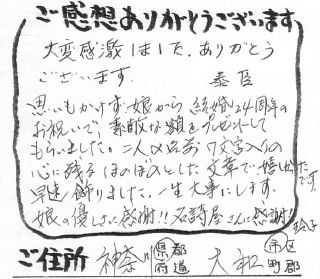 ご感想ありがとうございます
大変感激しました。ありがとう
ございます。 泰臣
思いもかけず娘から結婚24周年の
お祝いで、素敵な額をプレゼントして
もらいました。二人の名前の文字入りの
心に残るほのぼのとした文章で嬉しかったです
早速飾りました。一生大事にします。
娘の優しさに感謝!!名詩屋さんに感謝!!
玲子
ご住所 神奈川 都道府県 大和 市区町郡